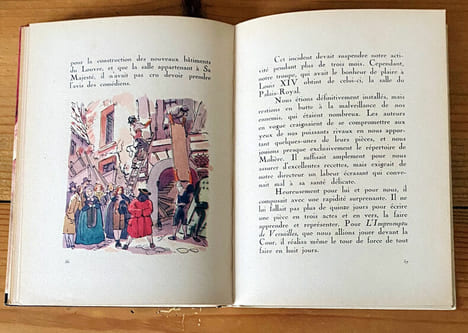 pour la construction des nouveaux bâtiments
du Louvre, et que la salle appartenant à Sa
Majesté, il n'avait pas cru devoir prendre
l'avis des comédiens.
56
Cet incident devait suspendre notre acti-
vité pendant plus de trois mois. Cependant,
notre troupe, qui avait le bonheur de plaire à
Louis XIV obtint de celui-ci, la salle du
Palais-Royal.
Nous étions définitivement installés, mais
restions en butte à la malveillance de nos
ennemis, qui étaient nombreux. Les auteurs
en vogue craignaient de se compromettre aux
yeux de nos puissants rivaux en nous appor-
tant quelques-unes de leurs pièces, et nous
jouions presque exclusivement le répertoire de
Molière. Il suffisait amplement pour nous
assurer d'excellentes recettes, mais exigeait de
notre directeur un labeur écrasant qui conve-
nait mal à sa santé délicate.
Heureusement pour lui et pour nous, il
composait avec une rapidité surprenante. Il ne
lui fallait pas plus de quinze jours pour écrire
une pièce en trois actes et en vers, la faire
apprendre et représenter. Pour L'Impromptu
de Versailles, que nous allions jouer devant la
Cour, il réalisa même le tour de force de tout
faire en huit jours.
57